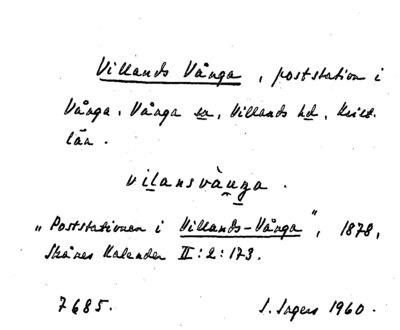 Villands Vånga, poststation i
Vånga, Vånga sn, Villands hd, Krist.
län.
vilansvàŋga.
„Poststationen i Villands-Vånga", 1878,
Skånes Kalender II:2:173.
7685. I. Ingers 1960.